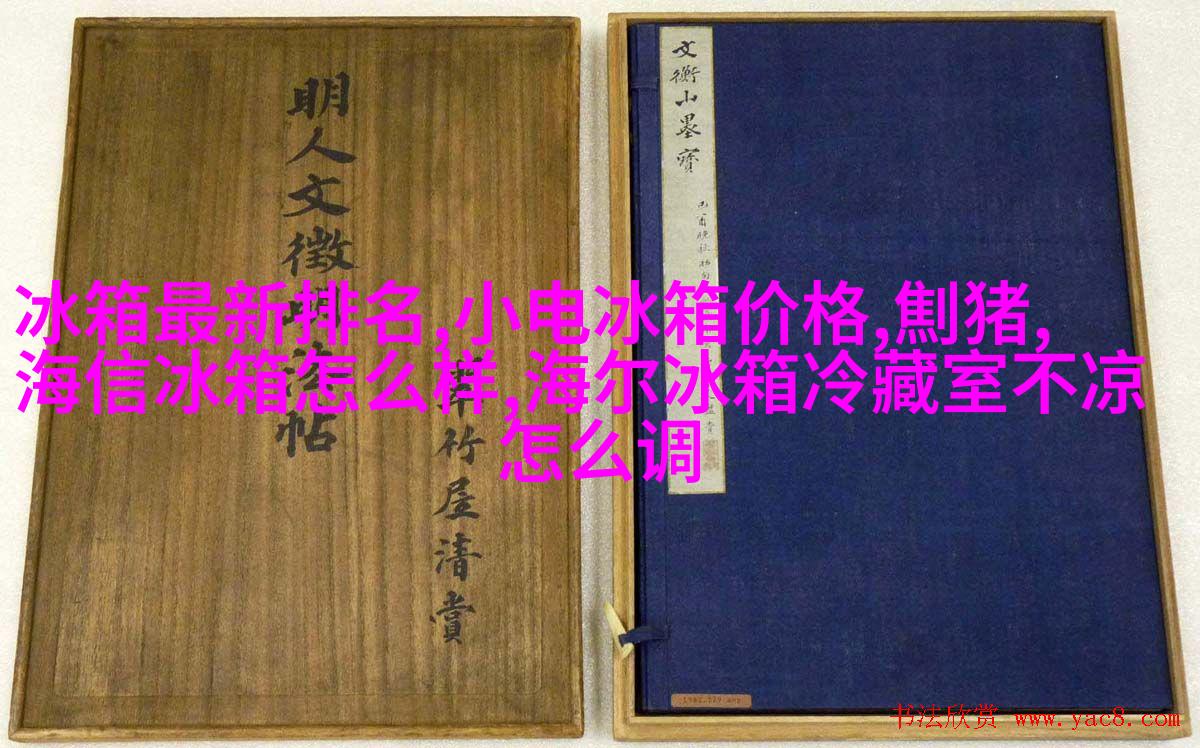 明人文徵明法帖
竹屋清賞
文衡山墨寶
冰箱最新排名,小电冰箱价格,劁猪,
海信冰箱怎么样,海尔冰箱冷藏室不凉
怎么调
书法欣赏 www.yac8.com